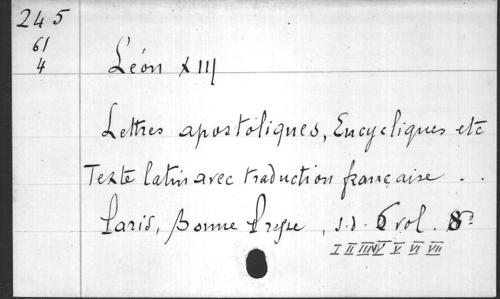 245
61
4
Léon XIII
Lettres apostoliques, Encycliques etc
Texte latin avec traduction française . .
Paris, Bonne Presse, s.d. 6 vol. 8º
I II III IV V VI VII